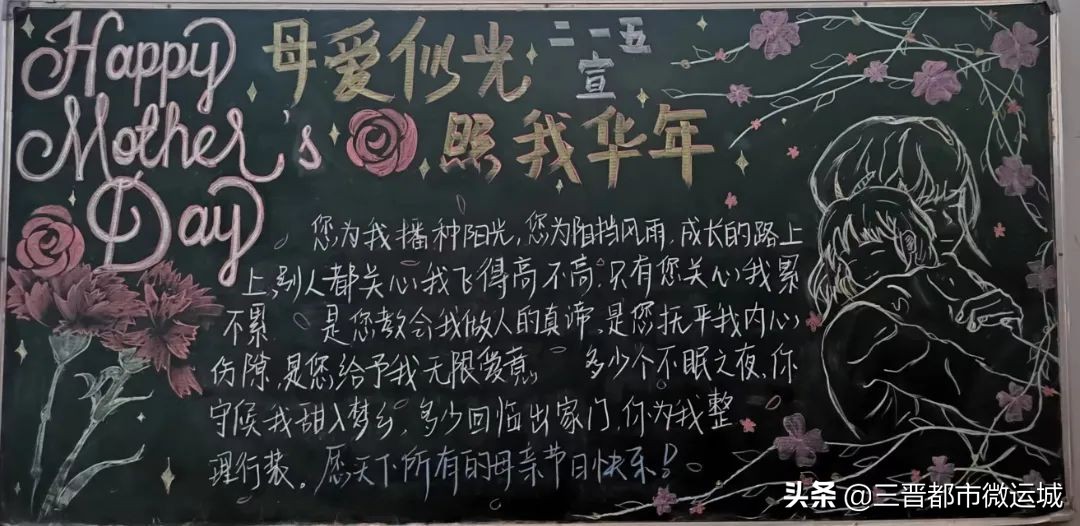 Happy
Mother's
Day
母爱似光
二一五
宣
照我华年
您为我播种阳光,您为阳挡风雨,成长的路上
上,别人都关心我飞得高不高.只有您关心我累
不累. 是您教会我做人的真谛,是您抚平我内心
伤隙,是您给予我无限爱意。 多少个不眠之夜,你
守候我甜入梦乡,多少回临出家门,你为我整
理行装。愿天下所有的母亲节日快乐!
头条 @三晋都市微运城